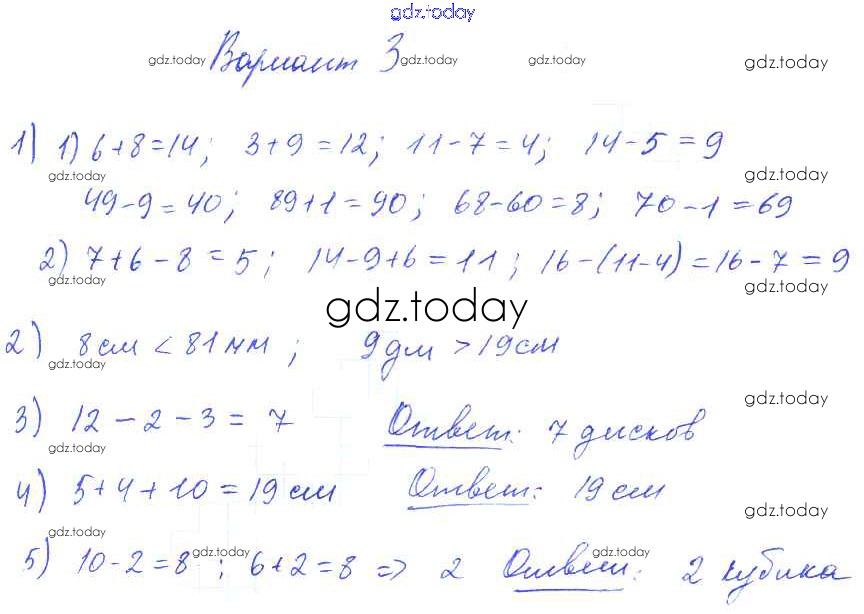 gdz.today
Вариант 3
gdz.today gdz.today gdz.today gdz.today
1) 1) 6+8=14; 3+9=12; 11-7=4; 14-5=9
gdz.today gdz.today
49-9=40; 89+1=90; 68-60=8; 70-1=69
2) 7+6-8=5; 14-9+6=11; 16-(11-4)=16-7=9
gdz.today gdz.today
gdz.today
2) 8 см < 81 мм; 9 дм > 19 см
gdz.today
gdz.today
3) 12-2-3=7 Ответ: 7 дисков
gdz.today
4) 5+4+10=19 см Ответ: 19 см
gdz.today gdz.today
5) 10-2=8; 6+2=8 => 2 Ответ: 2 кубика
gdz.today gdz.today